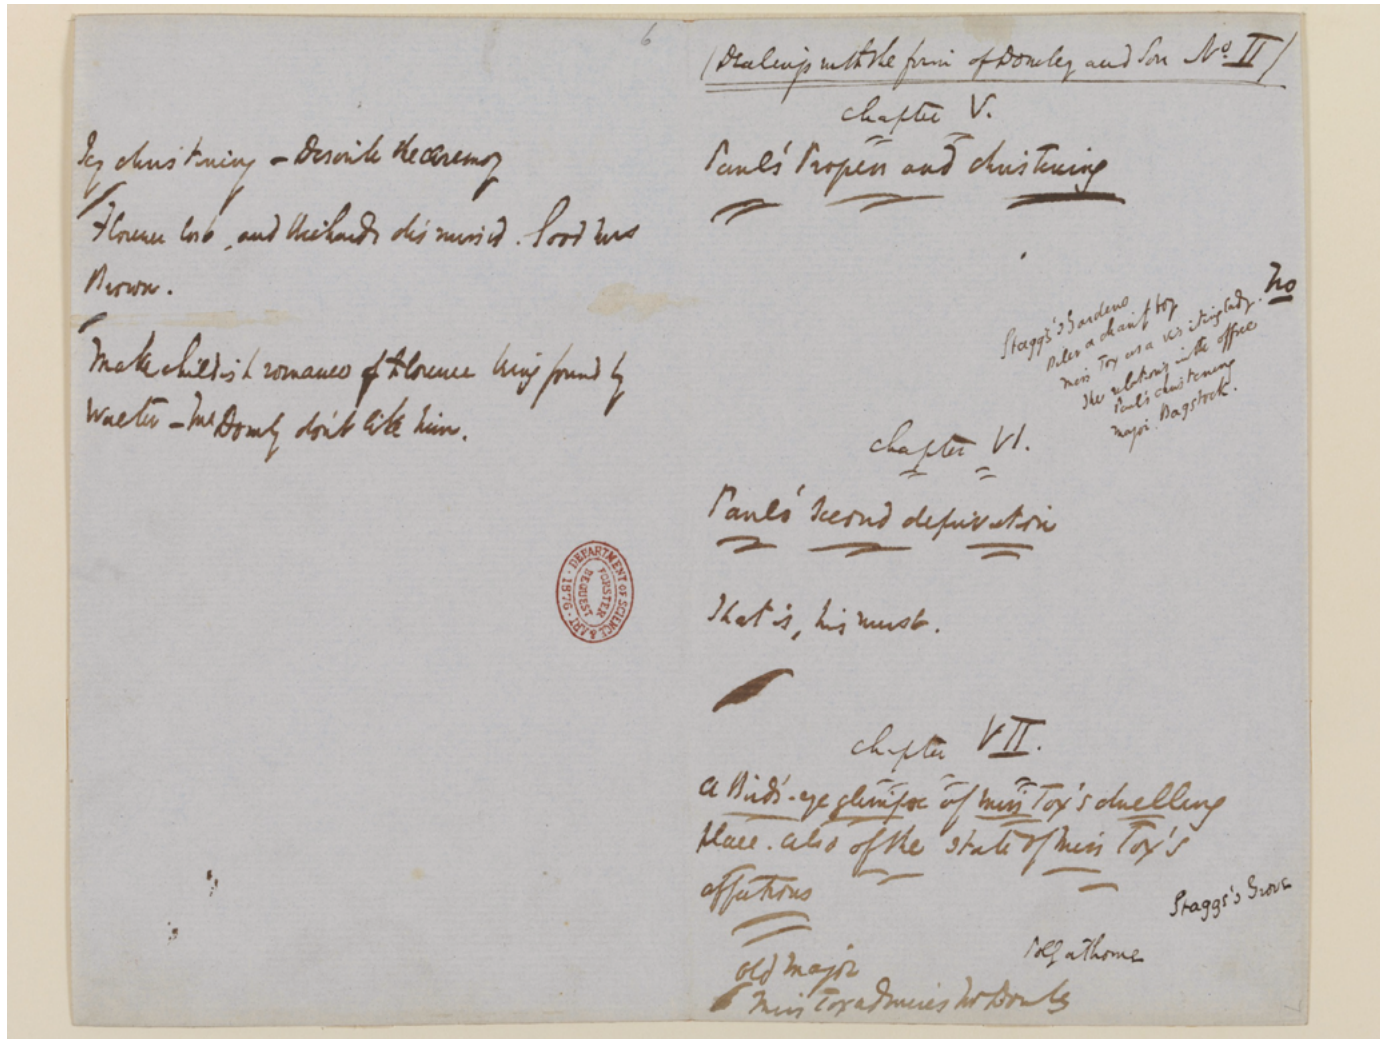 6
Icy christening – Describe the ceremony
Florence lost, and Richards dismissed. Good Mrs
Brown.
Make childish romance of Florence being found by
Walter – Mr Dombey don't like him.
DEPARTMENT OF SCIENCE & ART · 1876 ·
FORSTER
BEQUEST
(Dealings with the firm of Dombey and Son No. II)
chapter V.
Paul's Progress and christening
Staggs's Gardens
Biler a charity boy
Miss Tox as a visiting lady.
The relations in the office
Paul's christening
Major Bagstock.
No
chapter VI.
Paul's second deprivation
That is, his nurse.
chapter VII.
A Bird's-eye glimpse of Miss Tox's dwelling
place. also of the state of Miss Tox's
affections
Staggs's Grove
Polly at home
old Major
Miss Tox admires Mr Dombey